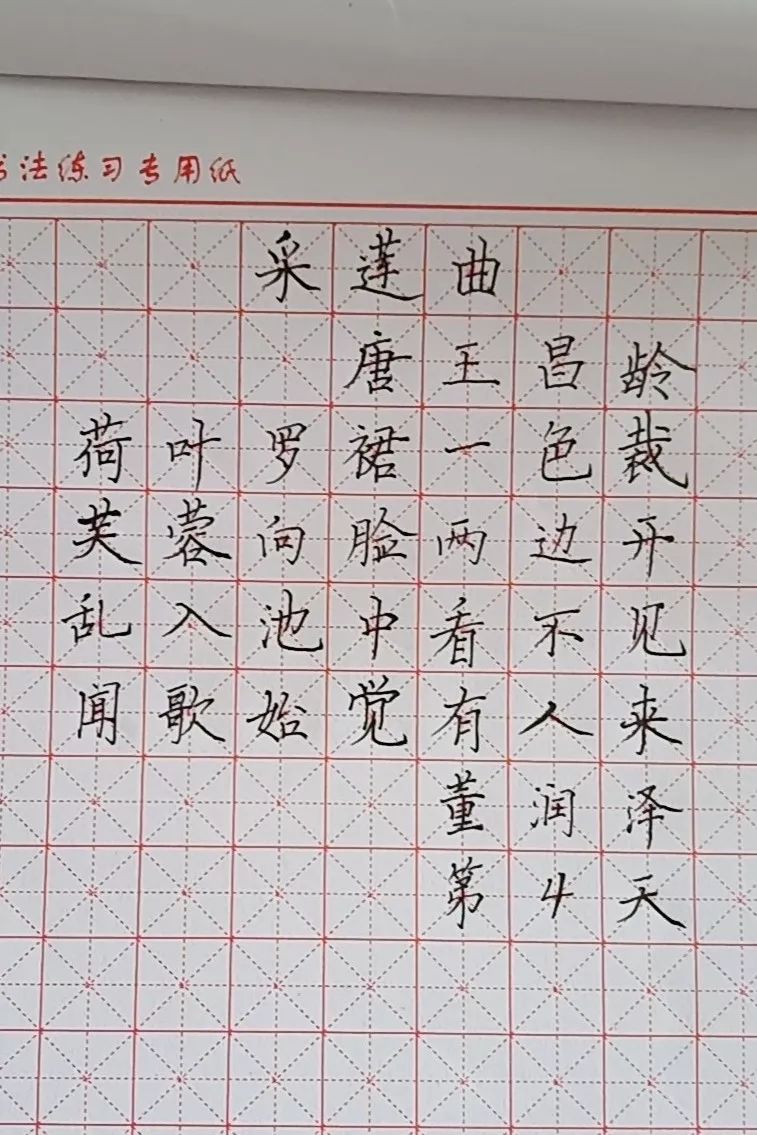 法练习专用纸
采莲曲
唐王昌龄
荷叶罗裙一色裁
芙蓉向脸两边开
乱入池中看不见
闻歌始觉有人来
董润泽
第4天